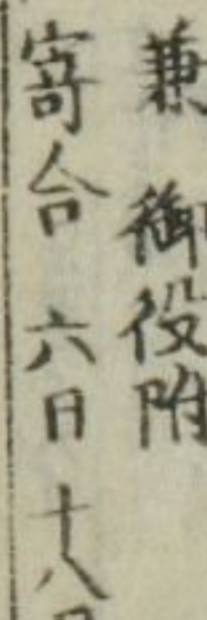 兼 御役附
寄合 六日 十八日